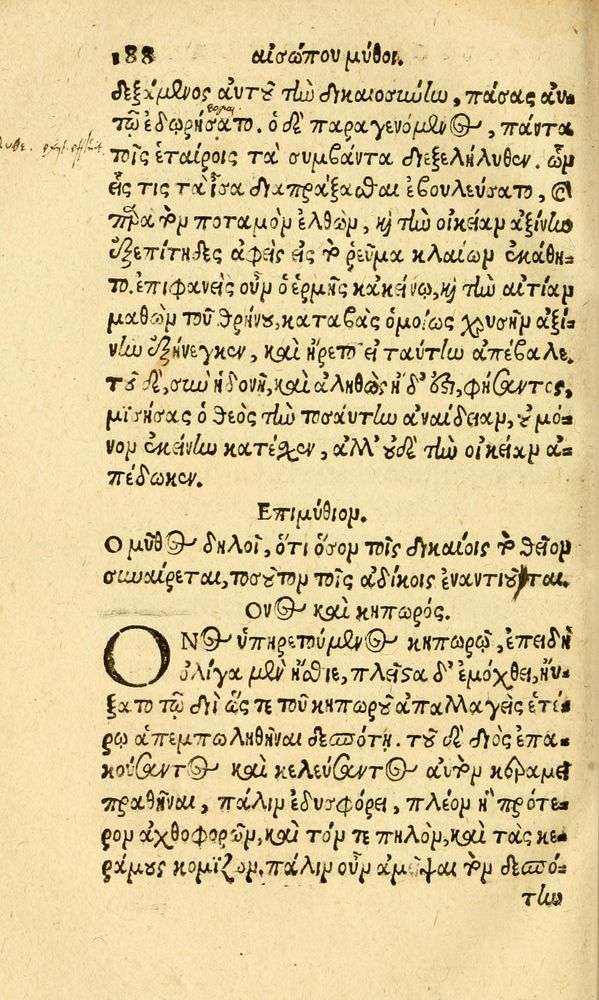 188 αἰσώπου μῦθοι.
δεξάμενος αὐτοῦ τὴν δικαιοσύνην, πάσας αὐ-
τῷ ἐδωρήσατο. ὁ δὲ παραγενόμενος, πάντα
τοῖς ἑταίροις τὰ συμβάντα διεξελήλυθεν. ὧν
εἷς τις τὰ ἶσα διαπράξασθαι ἐβουλεύσατο, καὶ
παρὰ τὸν ποταμὸν ἐλθὼν, καὶ τὴν οἰκείαν ἀξίνην
ἐξεπίτηδες ἀφεὶς εἰς τὸ ῥεῦμα κλαίων ἐκάθη-
το. ἐπιφανεὶς οὖν ὁ ἑρμῆς κἀκείνῳ, καὶ τὴν αἰτίαν
μαθὼν τοῦ θρήνου, καταβὰς ὁμοίως χρυσῆν ἀξί-
νην ἐξήνεγκεν, καὶ ἤρετο εἰ ταύτην ἀπέβαλε.
τοῦ δὲ, σὺν ἡδονῇ, καὶ ἀληθῶς ἥδ' ἐστι, φήσαντος,
μισήσας ὁ θεὸς τὴν τοσαύτην ἀναίδειαν, οὐ μό-
νον ἐκείνην κατέσχεν, ἀλλ' οὐδὲ τὴν οἰκείαν ἀ-
πέδωκεν.
Επιμύθιον.
Ο μῦθος δηλοῖ, ὅτι ὅσον τοῖς δικαίοις τὸ θεῖον
συναίρεται, τοσοῦτον τοῖς ἀδίκοις ἐναντιοῦται.
Ονος καὶ κηπωρός.
ΟΝος ὑπηρετούμενος κηπωρῷ, ἐπειδὴ
ὀλίγα μὲν ἤσθιε, πλεῖστα δ' ἐμόχθει, ηὔ-
ξατο τῷ διῒ ὥς τε τοῦ κηπωροῦ ἀπαλλαγεὶς ἑτέ-
ρῳ ἀπεμπωληθῆναι δεσπότῃ. τοῦ δὲ διὸς ἐπα-
κούσαντος καὶ κελεύσαντος αὐτὸν κεραμεῖ
πραθῆναι, πάλιν ἐδυσφόρει, πλέον ἢ πρότε-
ρον ἀχθοφορῶν, καὶ τόν τε πηλὸν, καὶ τὰς κε-
ράμους κομίζων. πάλιν οὖν ἀμεῖψαι τὸν δεσπό-
την